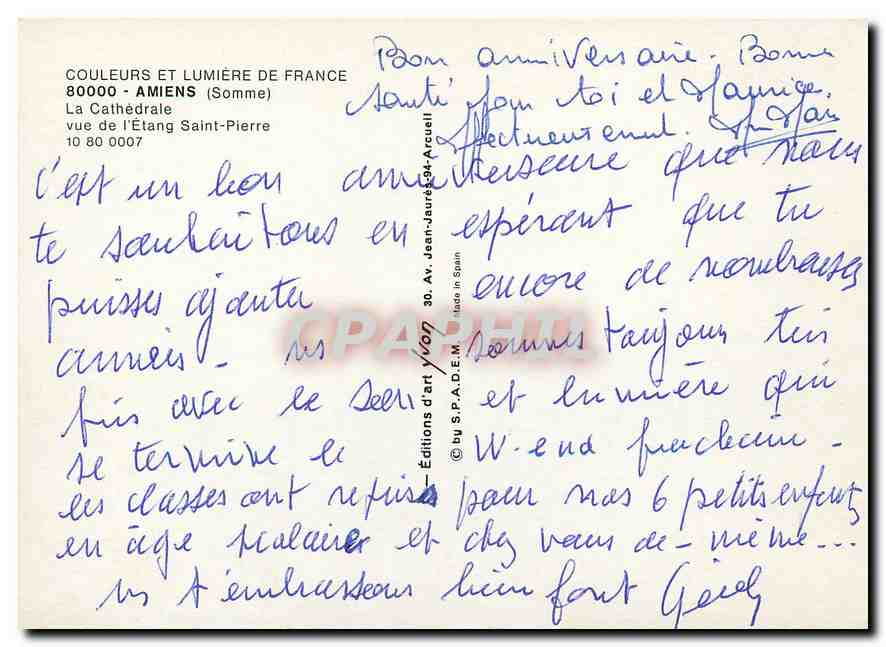 COULEURS ET LUMIÈRE DE FRANCE
80000 - AMIENS (Somme)
La Cathédrale
vue de l'Étang Saint-Pierre
10 80 0007
Bon anniversaire. Bonne
santé pour toi et Maurice.
Affectueusement.
c'est un bon anniversaire que nous
te souhaitons en espérant que tu
puisses ajouter encore de nombreuses
années - ns sommes toujours très
pris avec le son et lumière qui
se termine le W-end prochain -
les classes ont repris pour nos 6 petits enfants
en âge scolaire et chez vous de-même...
ns t'embrassons bien fort
— Éditions d'art yvon 30. Av. Jean-Jaurès-94-Arcueil
© by S.P.A.D.E.M. Made in Spain
CPAPHIL